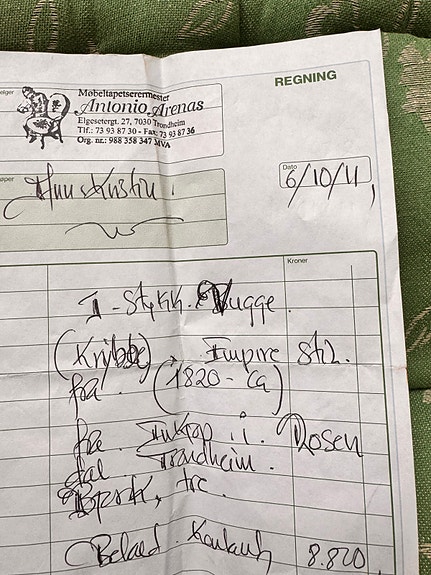 REGNING
elger
Møbeltapetserermester
Antonio Arenas
Elgesetergt. 27, 7030 Trondheim
Tlf.: 73 93 87 30 - Fax: 73 93 87 36
Org. nr.: 988 358 347 MVA
Dato
6/10/11,
øper
Ann Kristin.
Kroner
1 - Stykk. Vugge.
(Krybbe) Empire Stil.
fra. (1820 - ca)
fra i. Rosen
dal Trondheim.
Bjørk, tre.
8.820,